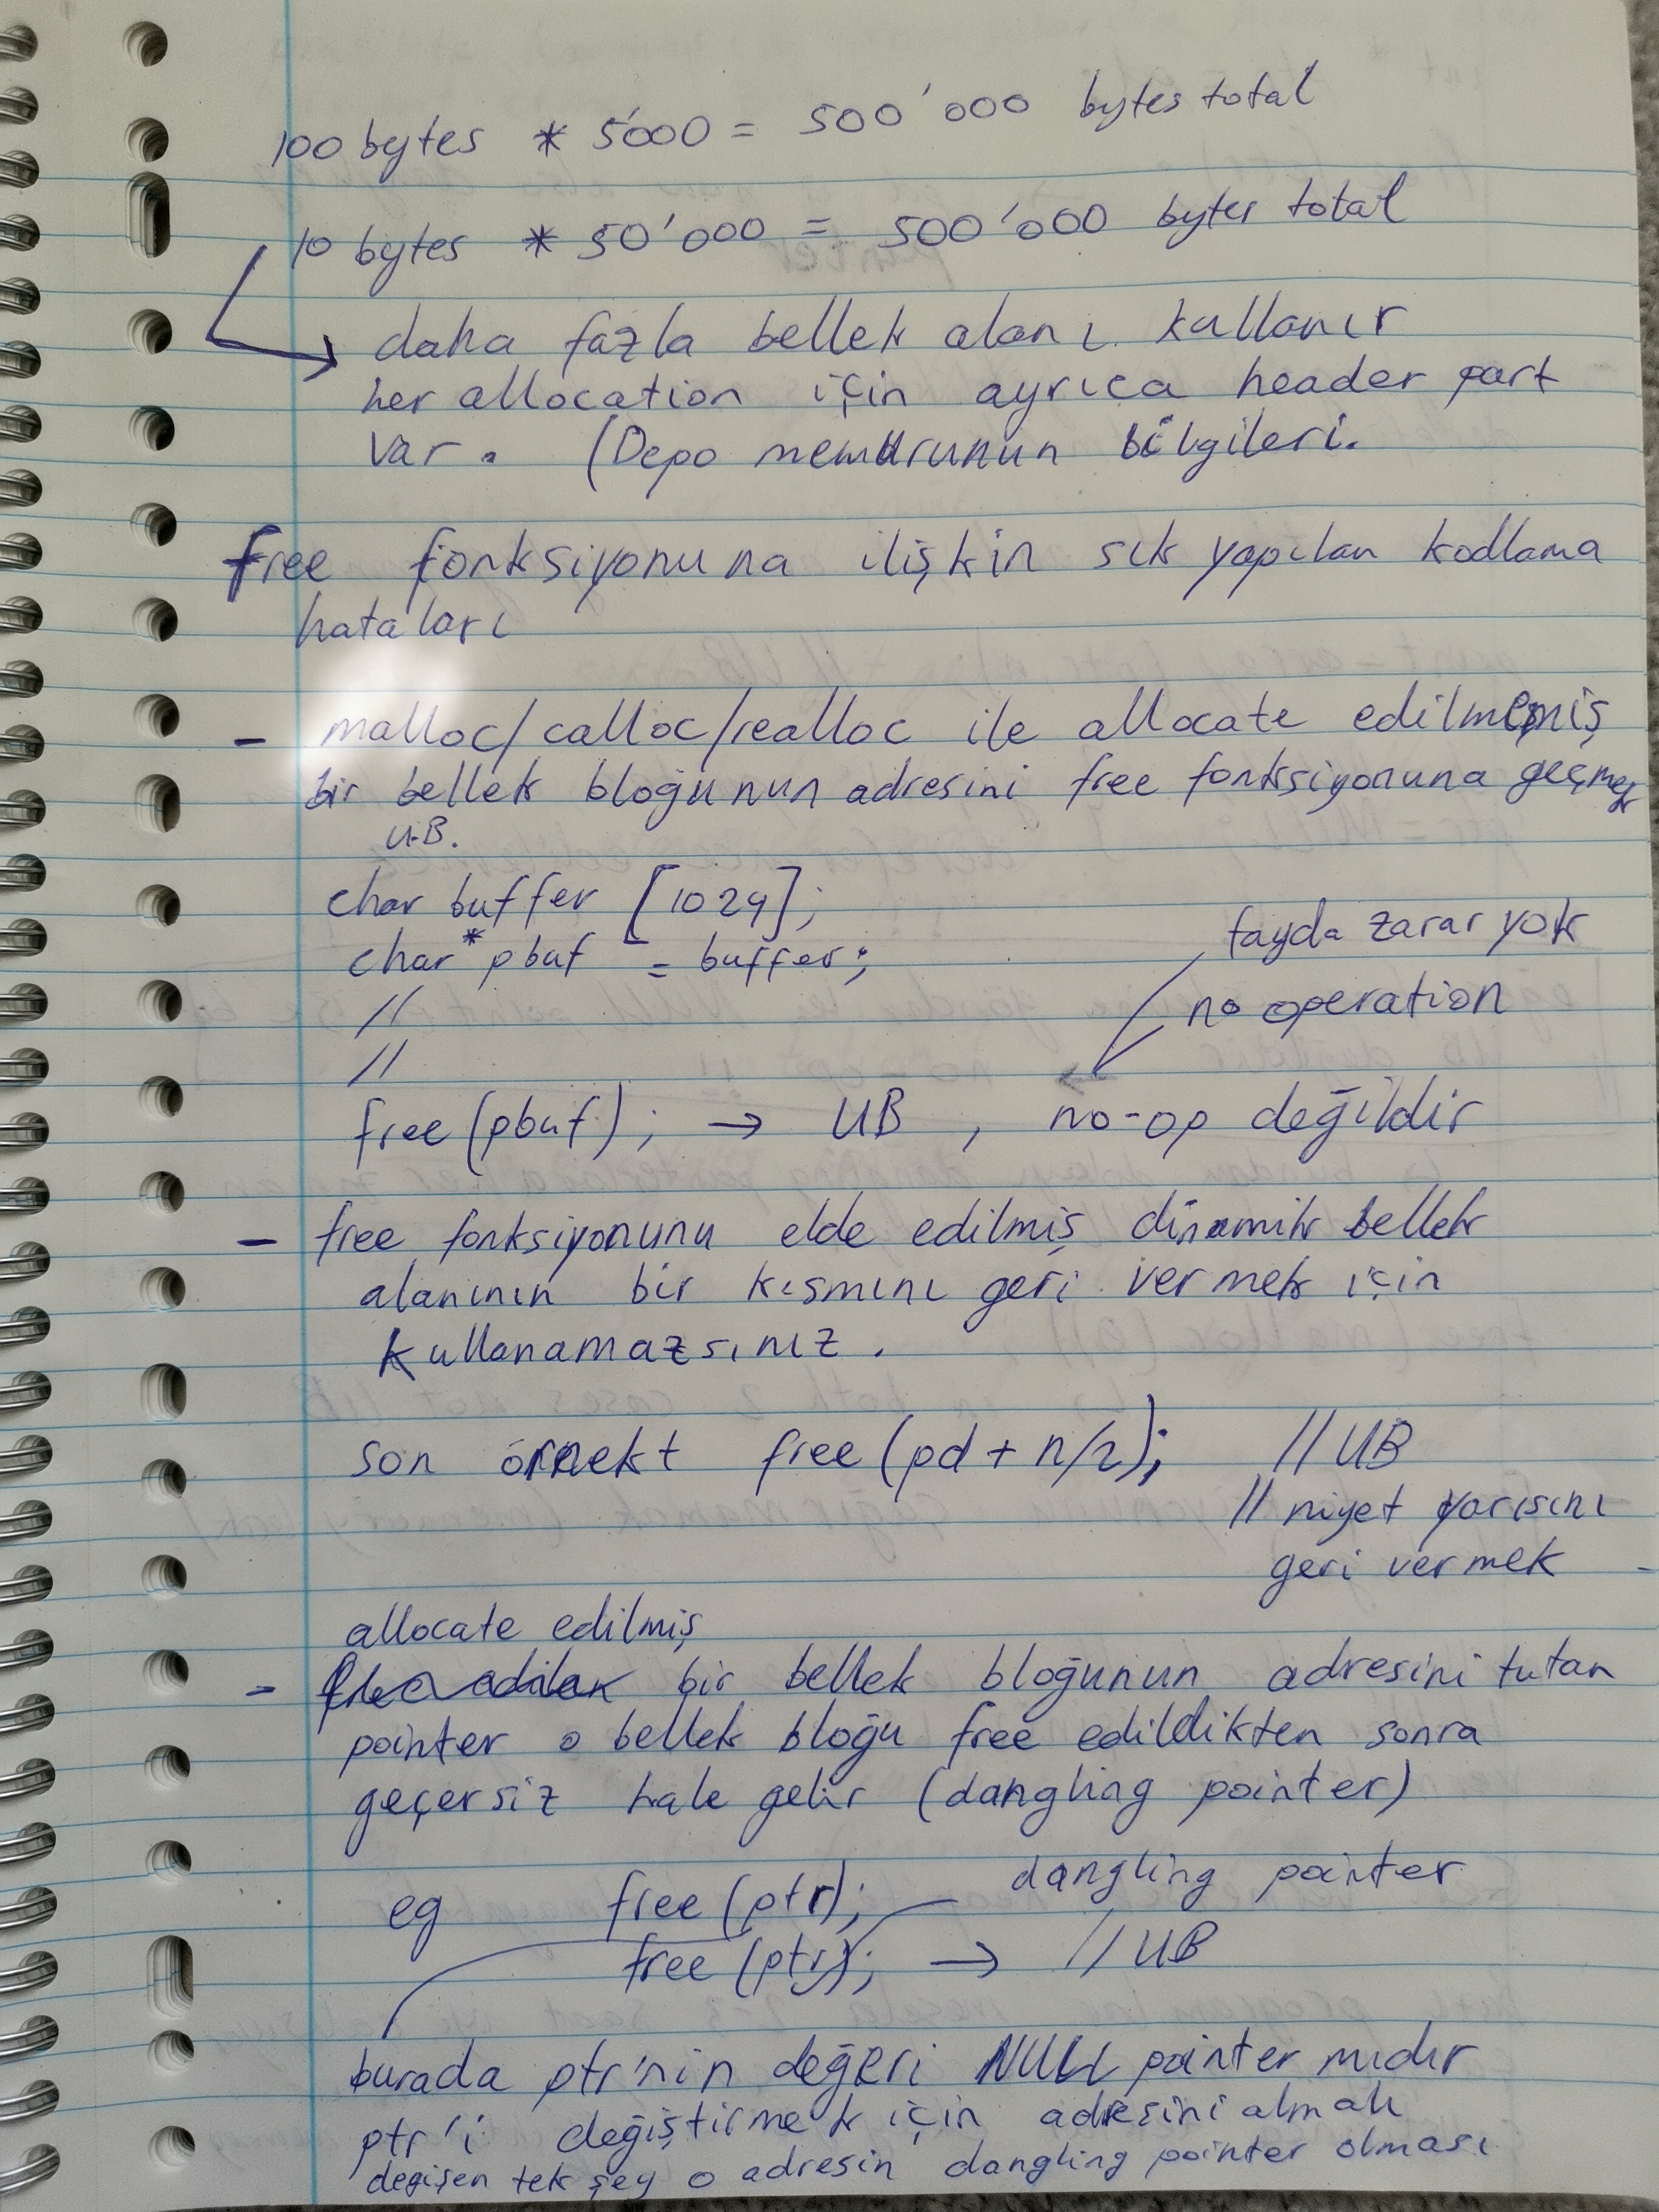 100 bytes * 5'000 = 500'000 bytes total
10 bytes * 50'000 = 500'000 bytes total
daha fazla bellek alanı kullanır
her allocation için ayrıca header part
var. (Depo memurunun bilgileri.
free fonksiyonuna ilişkin sık yapılan kodlama
hataları
- malloc/calloc/realloc ile allocate edilmemiş
bir bellek bloğunun adresini free fonksiyonuna geçmek
U.B.
char buffer [1024];
char* pbuf = buffer;
//
//
fayda zarar yok
no operation
free(pbuf); → UB, no-op değildir
- free fonksiyonunu elde edilmiş dinamik bellek
alanının bir kısmını geri vermek için
kullanamazsınız.
son örnekt free(pd + n/2); //UB
// niyet yarısını
geri vermek
allocate edilmiş
- bir bellek bloğunun adresini tutan
pointer o bellek bloğu free edildikten sonra
geçersiz hale gelir (dangling pointer)
eg free(ptr); dangling pointer
free(ptr); → //UB
burada ptr'nin değeri NULL pointer mıdır
ptr'i değiştirmek için adresini almalı
degisen tek şey o adresin dangling pointer olması